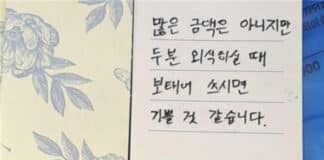 많은 금액은 아니지만
두분 외식하실 때
보태어 쓰시면
기쁠 것 같습니다.